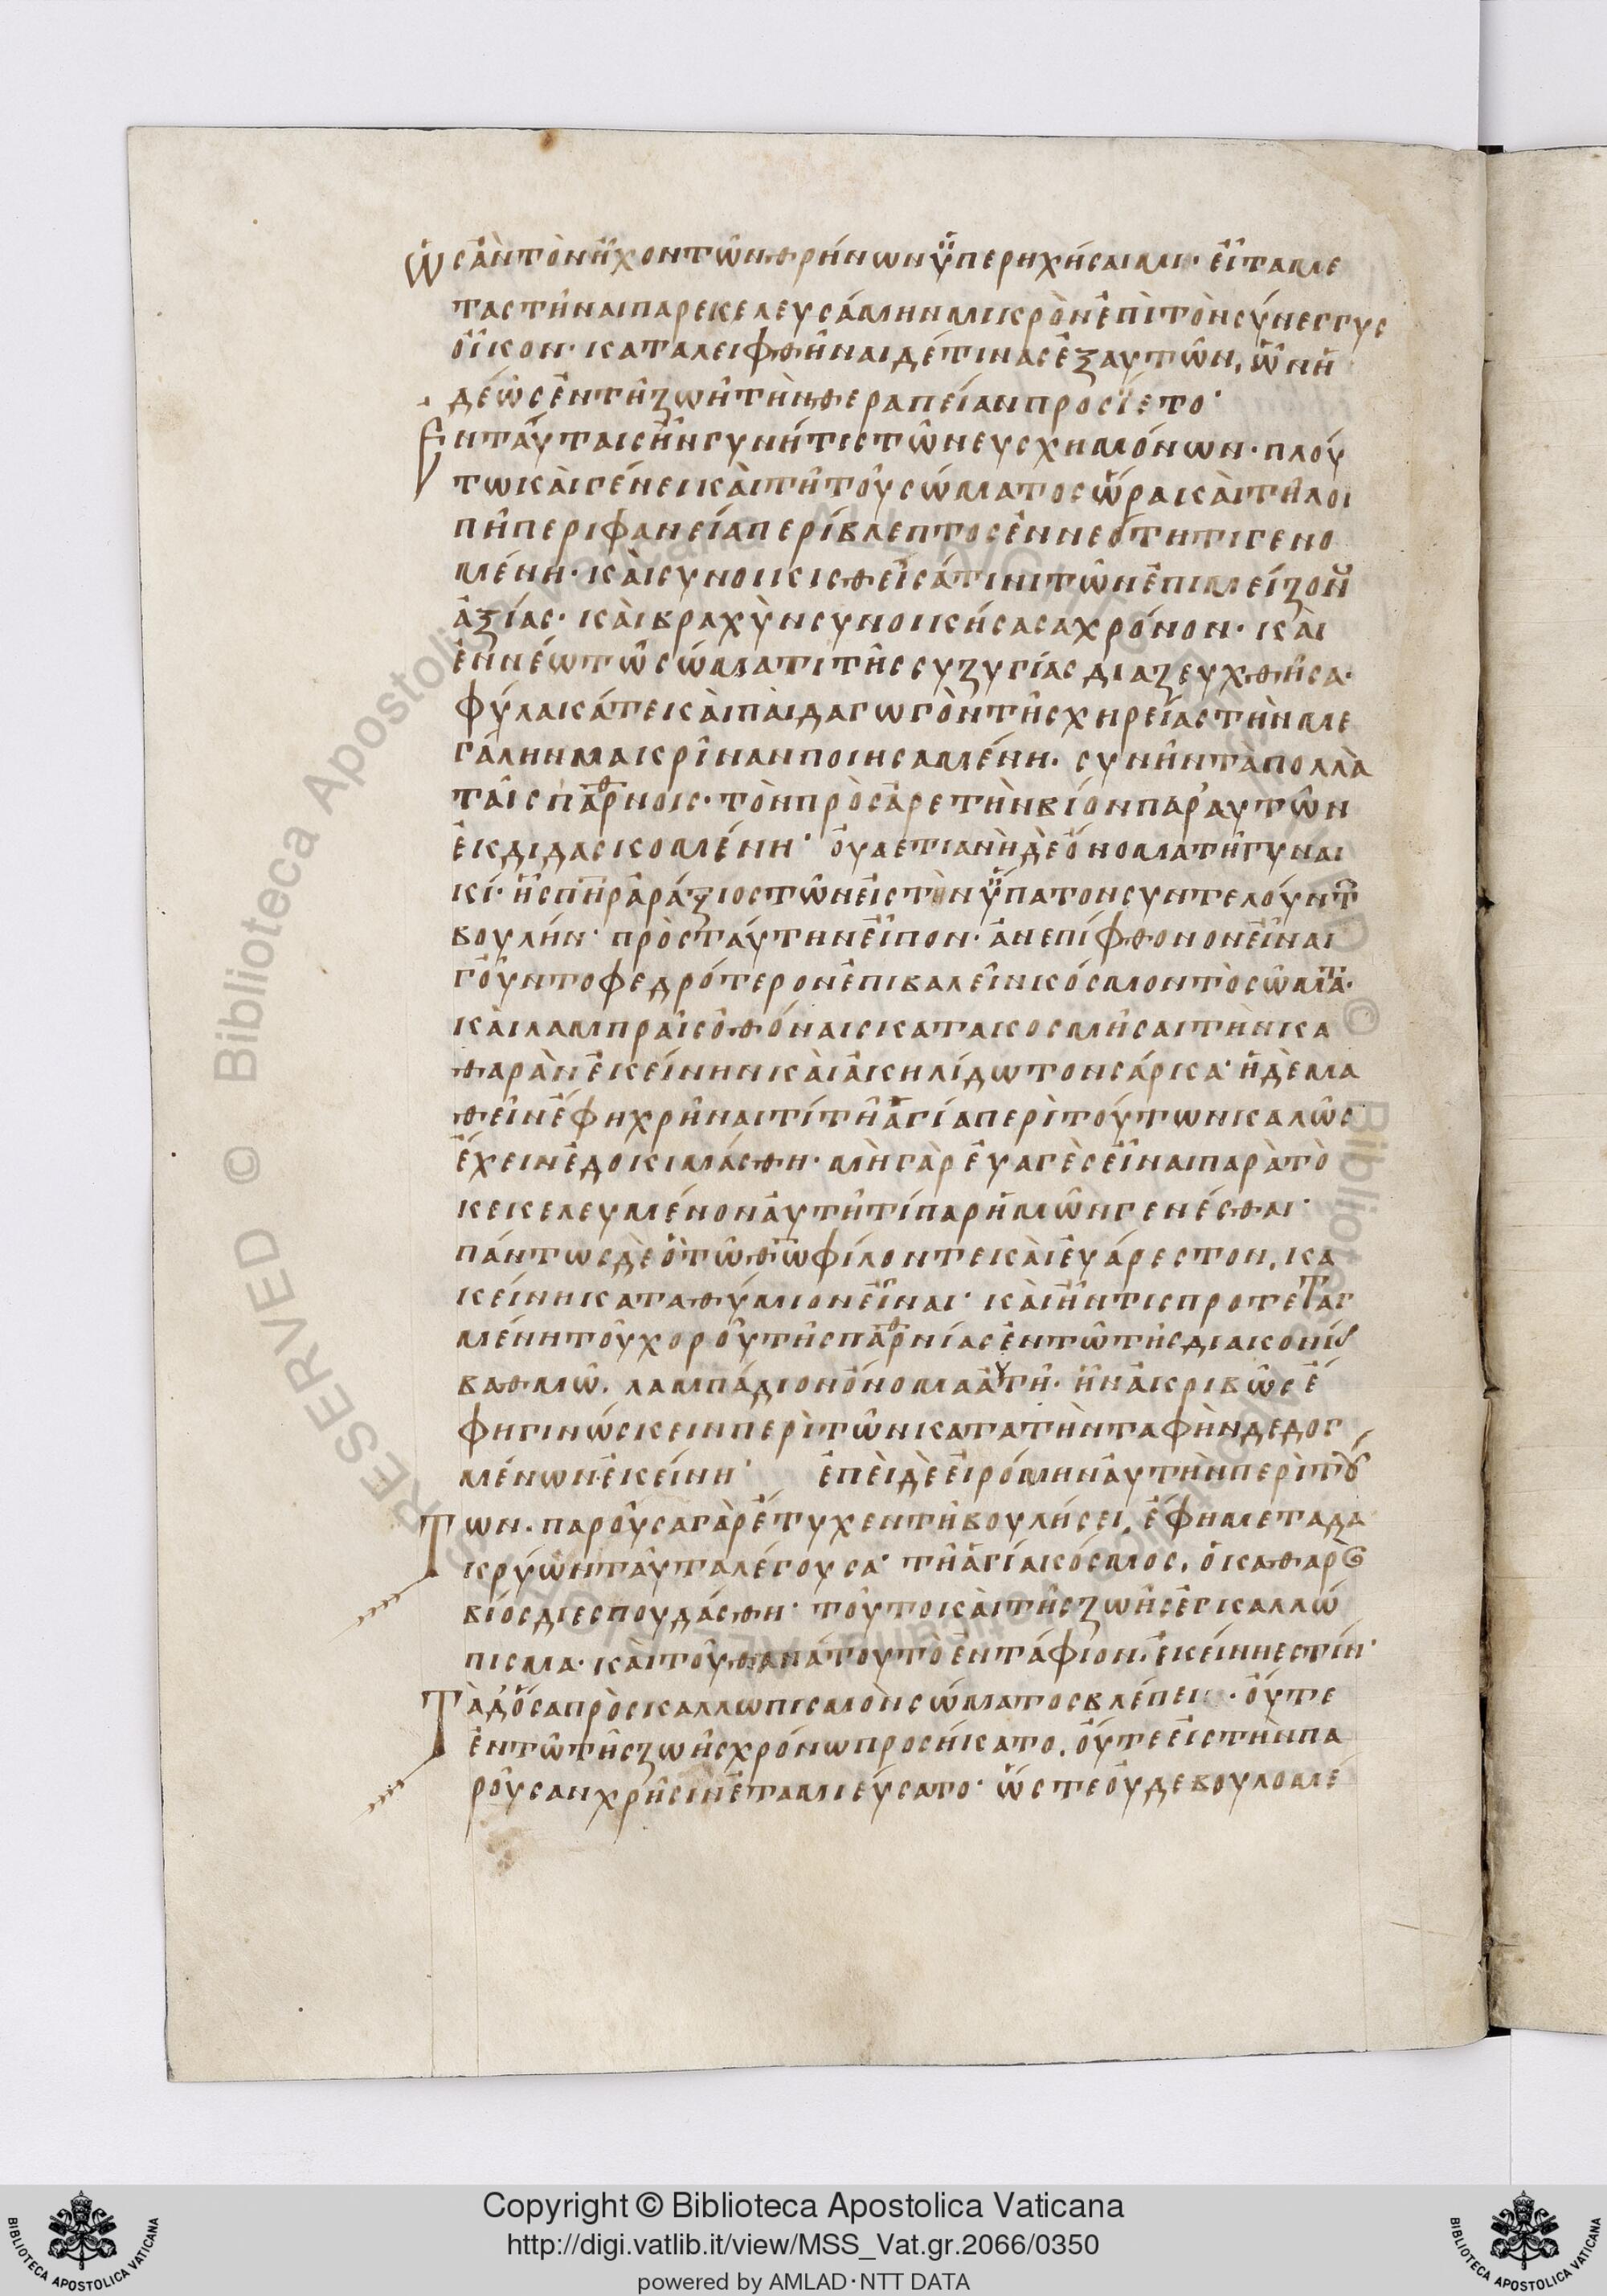 ὡς ἂν τὸν ἦχον τῶν θρήνων ὑπερηχήσαιμι· εἶτα με
ταστῆναι παρεκελευσάμην μικρὸν ἐπὶ τὸν σύνεγγυς
οἶκον· καταλειφθῆναι δέ τινας ἐξ αυτῶν, ὧν ἡ
δέως ἐν τῇ ζωῇ τὴν θεραπείαν προσΐετο·
Ἐν ταύταις ἦν γυνή τις τῶν ευσχημόνων· πλού
τω καὶ γένει καὶ τῇ τοῦ σώματος ὥρα καὶ τῇ λοι
πῇ περιφανεία περίβλεπτος ἐν νεότητι γενο
μένη· καὶ συνοικισθεῖσά τινι τῶν ἐπι μείζον
ἀξίας· καὶ βραχὺν συνοικήσασα χρόνον· καὶ
ἐν νέω τῷ σώματι τῆς συζυγίας διαζευχθῆσα·
φύλακά τε καὶ παιδαγωγὸν τῆς χηρείας τὴν με
γάλην μακρῖναν ποιησαμένη· συνῆν τὰ πολλὰ
ταῖς παρθνοις· τὸν πρὸς ἀρετὴν βίον παρ' αυτῶν
ἐκδιδασκομένη· ουαετιανὴ δὲ ὄνομα τῇ γυναι
κί· ἧς πηρ ἀράξιος τῶν εἰς τὴν ὕπατον συντελούντ
βουλήν· πρὸς ταύτην εἶπον· ἀνεπίφθονον εἶναι
γοῦν το φεδρότερον ἐπιβαλεῖν κόσμον τὸ σῶματ·
καὶ λαμπραῖς ὀθόναις κατακοσμῆσαι τὴν κα
θαρὰν ἐκείνην καὶ ἀκηλίδωτον σάρκα· ἡ δὲ μα
θεῖν ἔφη χρῆναι τί τῇ ἁγία περὶ τούτων καλῶς
ἔχειν ἐδοκιμάσθη· μὴ γὰρ ἐυαγὲς εἶναι παρὰ τὸ
κεκελευμένον ἀυτῇ τί παρ ἡμῶν γενέσθαι·
πάντως δὲ ὃ τῷ θω φίλον τε καὶ ἐυάρεστον, κα
κείνη καταθύμιον εἶναι· καὶ ἦν τις προτεταγ
μένη τοῦ χοροῦ τῆς παρθνίας ἐν τῷ τῆς διακονίας
βαθμῷ, λαμπάδιον ὄνομα ἀυτῇ· ἣν ἀκριβῶς ἔ
φη γινώσκειν περὶ τῶν κατα τὴν ταφὴν δεδογ
μένων ἐκείνη· ἐπεὶ δὲ εἰρόμην ἀυτὴν περὶ τού
Των· παροῦσα γὰρ ἔτυχεν τῇ βουλήσει, ἔφη μετα δα
κρύων ταῦτα λέγουσα· τῇ ἁγία κόσμος, ὁ καθαρὸς
βίος διεσπουδάσθη· τοῦτο καὶ τῆς ζωῆς ἐγκαλλώ
πισμα· καὶ τοῦ θανάτου τὸ ἐντάφιον ἐκείνη ἐστίν·
Τὰ δ' ὅσα πρὸς καλλωπισμὸν σώματος βλέπει· ούτε
ἐν τῷ τῆς ζωῆς χρόνω προσήκατο, ούτε εἰς τὴν πα
ροῦσαν χρῆσιν ἐταμιεύσατο· ὥστε ουδε βουλομέ
Copyright © Biblioteca Apostolica Vaticana
http://digi.vatlib.it/view/MSS_Vat.gr.2066/0350
powered by AMLAD·NTT DATA